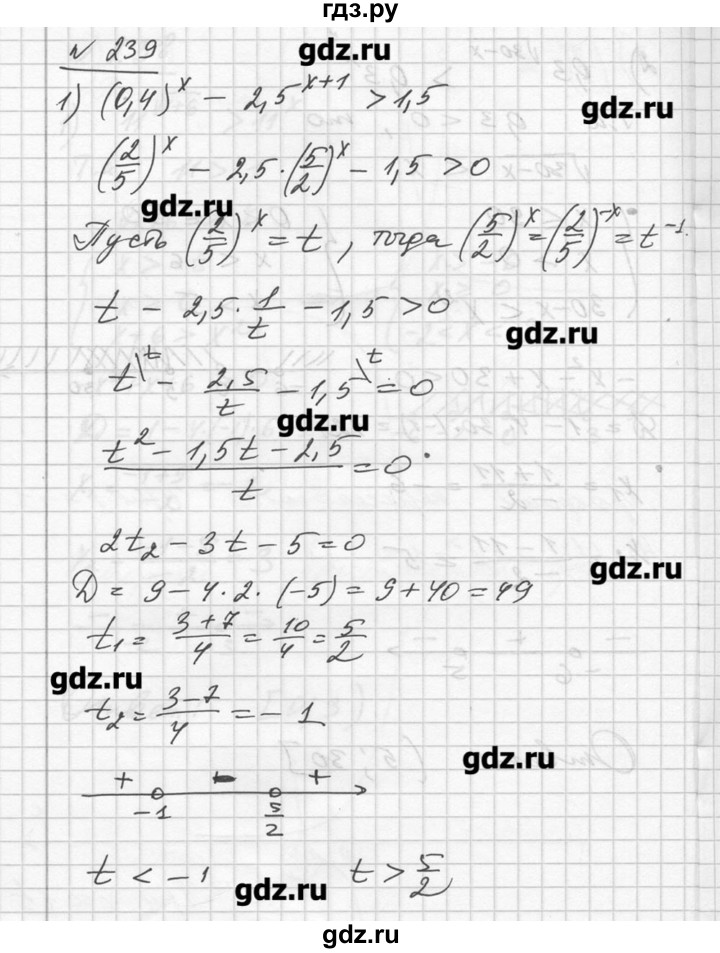 гдз.ру
№ 239
gdz.ru
1) (0,4)^x − 2,5^{x+1} > 1,5
gdz.ru
(2/5)^x − 2,5·(5/2)^x − 1,5 > 0
gdz.ru
Пусть (2/5)^x = t, тогда (5/2)^x = (2/5)^{-x} = t^{-1}.
t − 2,5·1/t − 1,5 > 0
gdz.ru
t\t − 2,5/t − 1,5\t = 0
gdz.ru
(t² − 1,5t − 2,5)/t = 0
2t₂ − 3t − 5 = 0
gdz.ru
D = 9 − 4·2·(−5) = 9 + 40 = 49
t₁ = (3+7)/4 = 10/4 = 5/2
gdz.ru
t₂ = (3−7)/4 = −1
gdz.ru
+ − +
−1 5/2
t < −1 t > 5/2
gdz.ru
gdz.ru